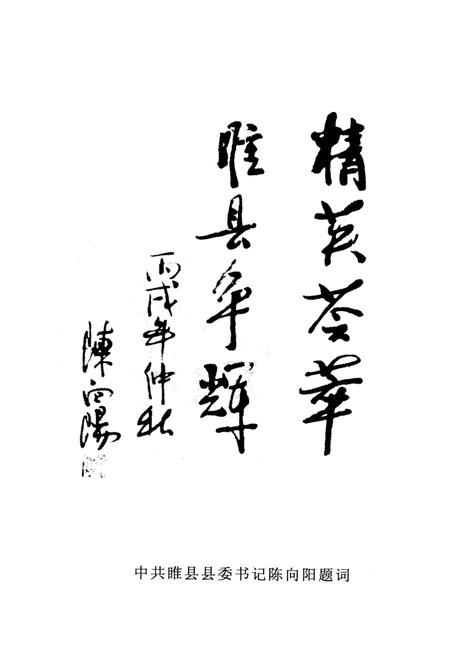 精英荟萃
睢县争辉
丙戌年仲秋
陈向陽
中共睢县县委书记陈向阳题词